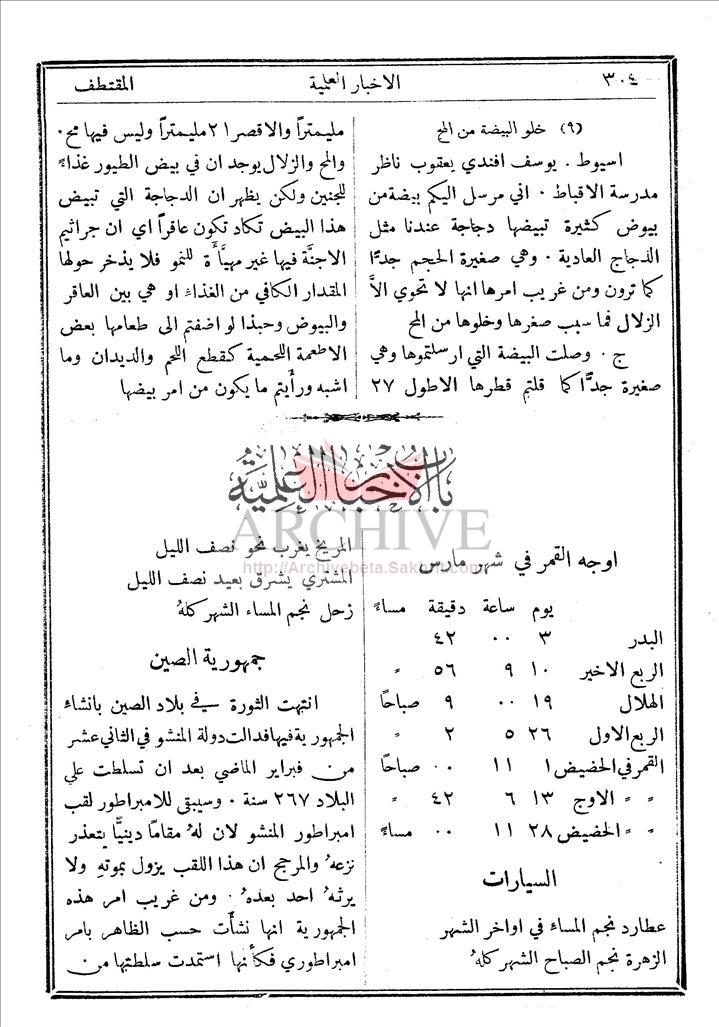 ٣٠٤ الاخبار العلمية المقتطف
(٩) خلو البيضة من المح
اسيوط . يوسف افندي يعقوب ناظر
مدرسة الاقباط . اني مرسل اليكم بيضة من
بيوض كثيرة تبيضها دجاجة عندنا مثل
الدجاج العادية . وهي صغيرة الحجم جدًّا
كما ترون ومن غريب امرها انها لا تحوي الَّا
الزلال فما سبب صغرها وخلوها من المح
ج . وصلت البيضة التي ارسلتموها وهي
صغيرة جدًّا كما قلتم قطرها الاطول ٢٧
مليمتراً والاقصر ٢١ مليمتراً وليس فيها مح .
والمح والزلال يوجدان في بيض الطيور غذاءً
للجنين ولكن يظهر ان الدجاجة التي تبيض
هذا البيض تكاد تكون عاقراً اي ان جراثيم
الاجنَّة فيها غير مهيَّأَة للنمو فلا يذخر حولها
المقدار الكافي من الغذاء او هي بين العاقر
والبيوض وحبذا لو اضفتم الى طعامها بعض
الاطعمة اللحمية كقطع اللحم والديدان وما
اشبه ورأَيتم ما يكون من امر بيضها
باب الاخبار العلمية
ARCHIVE
http://Archivebeta.Sakhrit.com
اوجه القمر في شهر مارس
يوم ساعة دقيقة مساءً
البدر ٣ ٠٠ ٤٢
الربع الاخير ١٠ ٩ ٥٦ "
الهلال ١٩ ٠٠ ٩ صباحًا
الربع الاول ٢٦ ٥ ٢ "
القمر في الحضيض ١ ١١ ٠٠ صباحًا
" " الاوج ١٣ ٦ ٤٢ "
" " الحضيض ٢٨ ١١ ٠٠ مساءً
السيارات
عطارد نجم المساء في اواخر الشهر
الزهرة نجم الصباح الشهر كلهُ
المريخ يغرب نحو نصف الليل
المشتري يشرق بعيد نصف الليل
زحل نجم المساء الشهر كلهُ
جمهورية الصين
انتهت الثورة في بلاد الصين بانشاء
الجمهورية فيها فدالت دولة المنشو في الثاني عشر
من فبراير الماضي بعد ان تسلطت على
البلاد ٢٦٧ سنة . وسيبقى للامبراطور لقب
امبراطور المنشو لان لهُ مقامًا دينيًّا يتعذر
نزعهُ والمرجح ان هذا اللقب يزول بموتهِ ولا
يرثهُ احد بعدهُ . ومن غريب امر هذه
الجمهورية انها نشأَت حسب الظاهر بامر
امبراطوري فكأَنها استمدت سلطتها من